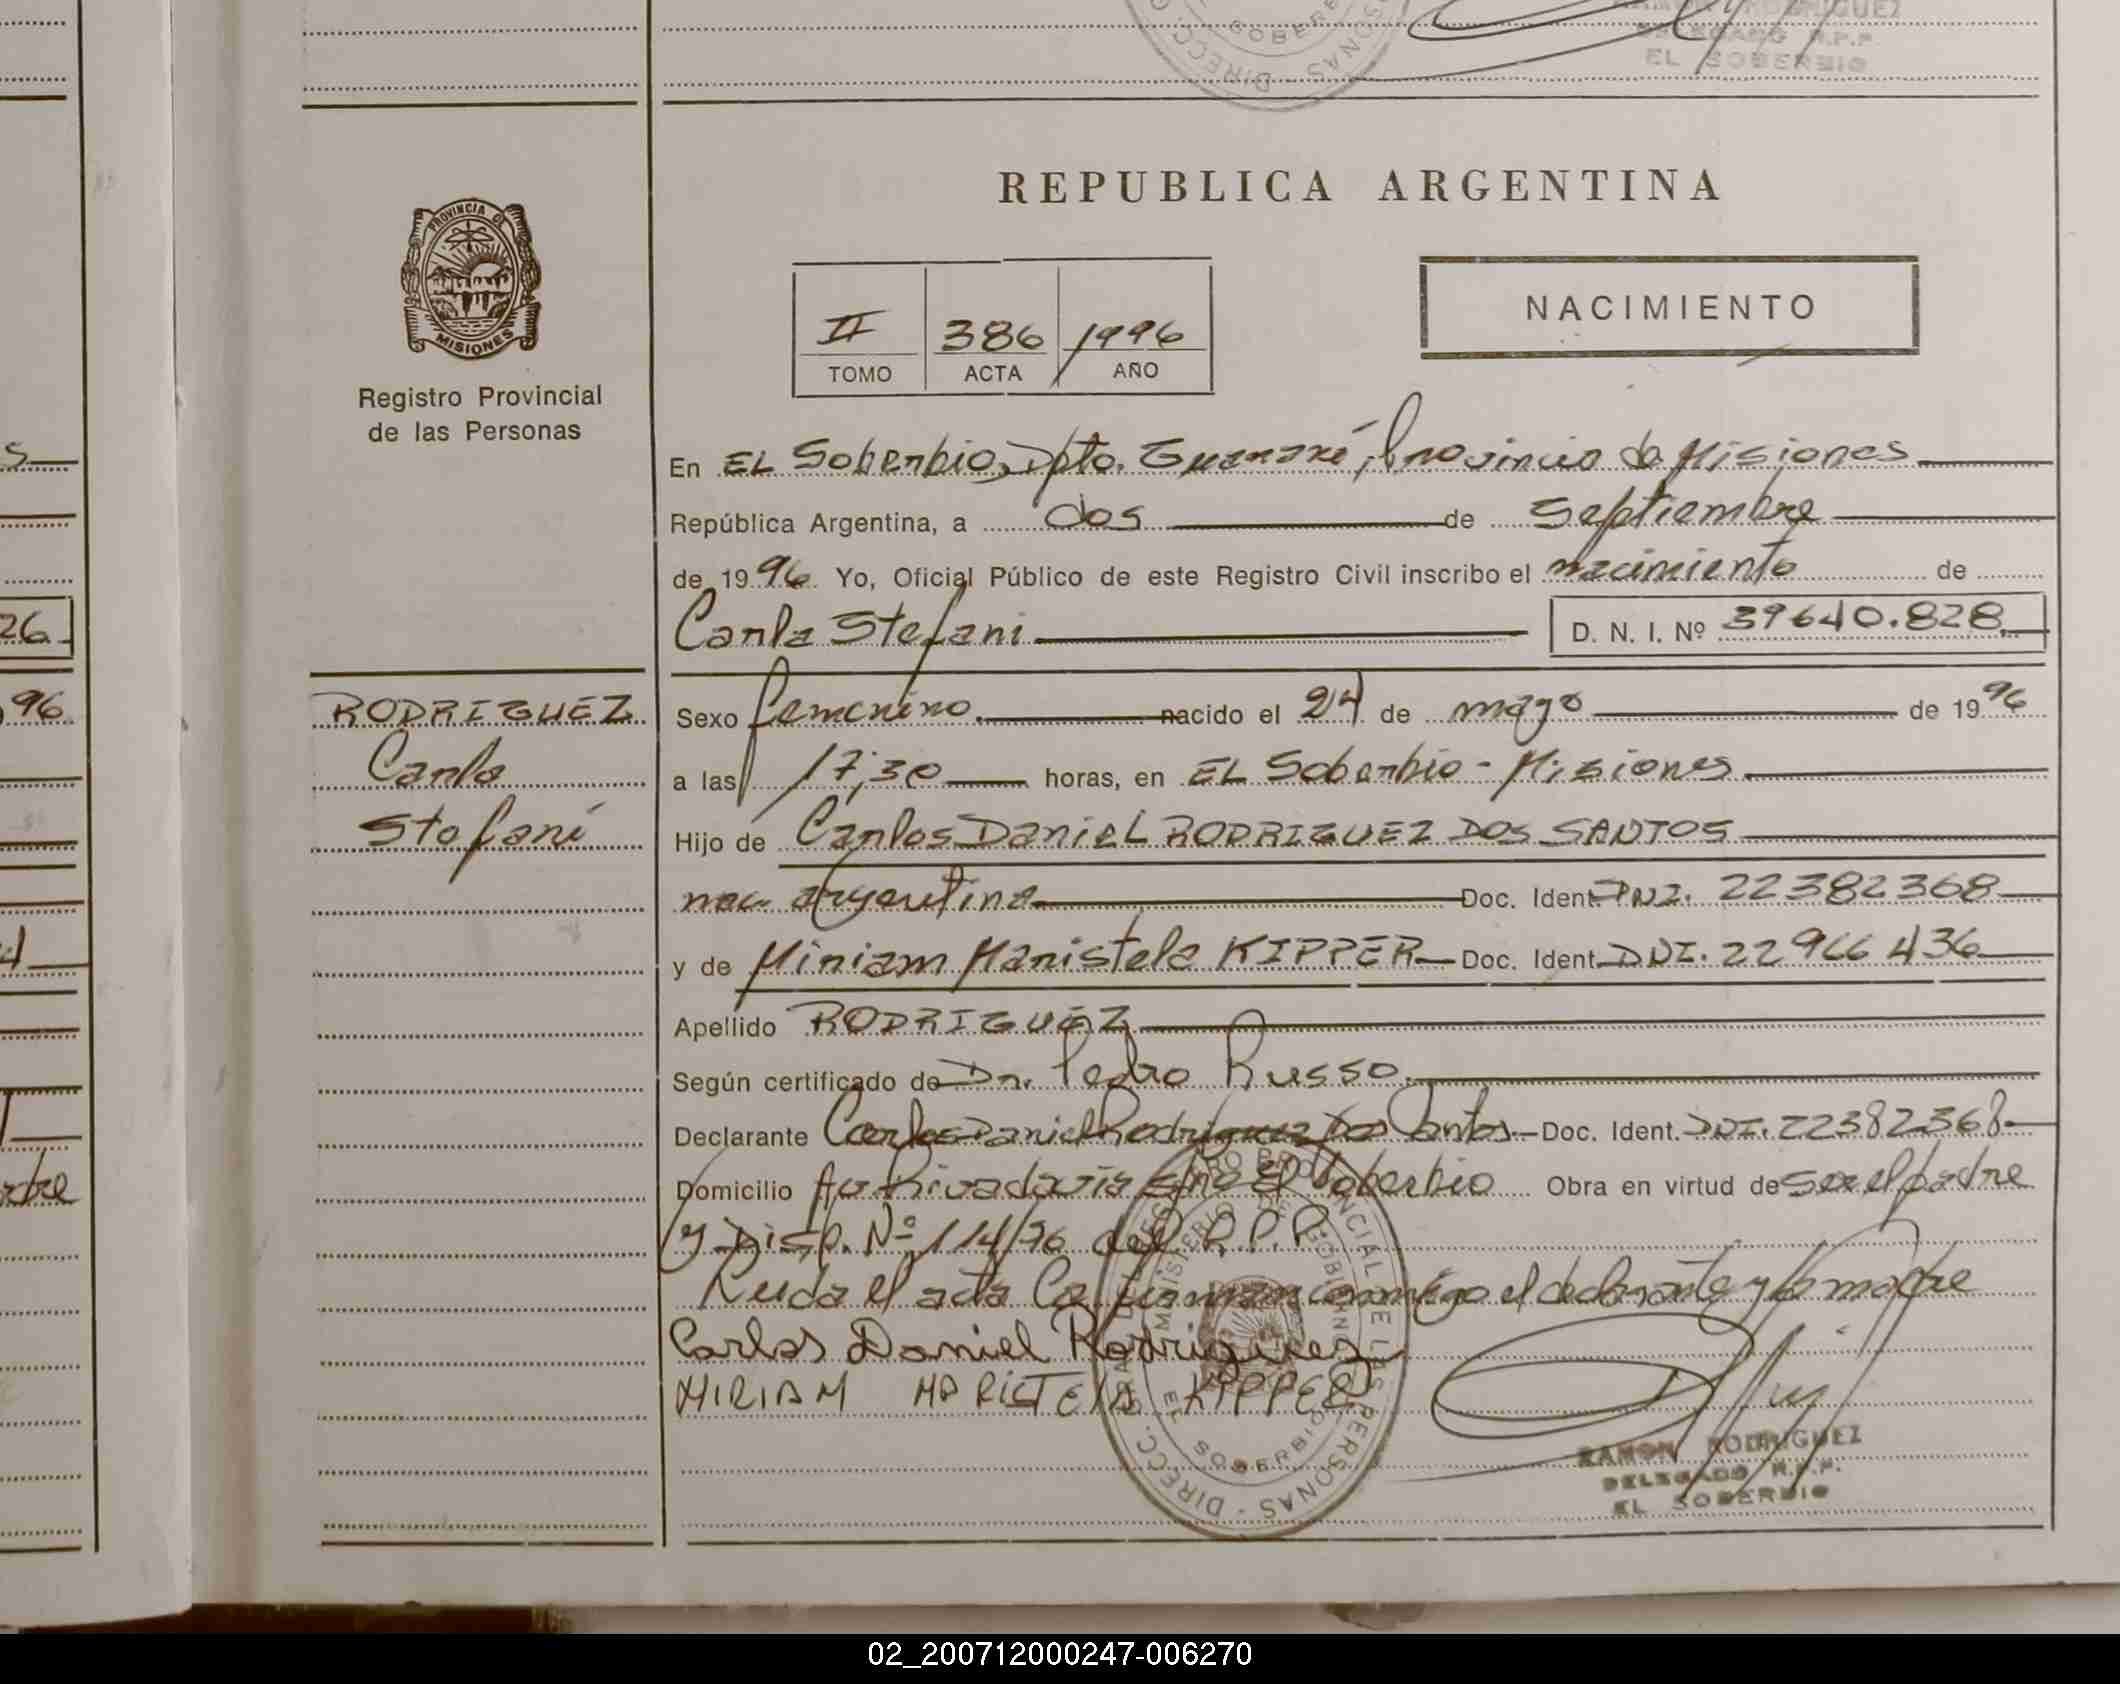 RAMON RODRIGUEZ
DELEGADO R.P.P.
EL SOBERBIO
REPUBLICA ARGENTINA
PROVINCIA DE
MISIONES
Registro Provincial
de las Personas
II 386 1996
TOMO ACTA AÑO
NACIMIENTO
En EL Soberbio, Dpto. Guaraní, Provincia de Misiones
República Argentina, a dos de Septiembre
de 1996 Yo, Oficial Público de este Registro Civil inscribo el nacimiento de
Carla Stefani D. N. I. Nº 39640.828
RODRIGUEZ
Carla
Stefani
Sexo femenino nacido el 24 de mayo de 1996
a las 17,30 horas, en EL Soberbio - Misiones
Hijo de Carlos Daniel RODRIGUEZ DOS SANTOS
nac. argentina Doc. Ident. DNI. 22382368
y de Miriam Maristela KIPPER Doc. Ident. DNI. 22966436
Apellido RODRIGUEZ
Según certificado de Dr. Pedro Russo
Declarante Carlos Daniel Rodriguez Dos Santos Doc. Ident. DNI. 22382368
Domicilio Av Rivadavia s/nº El Soberbio Obra en virtud de ser el padre
y Disp. Nº 114/96 del R.P.P.
Leída el acta la firman conmigo el declarante y la madre
Carlos Daniel Rodriguez
MIRIAM MARISTELA KIPPER
RAMON RODRIGUEZ
DELEGADO R.P.P.
EL SOBERBIO
02_200712000247-006270